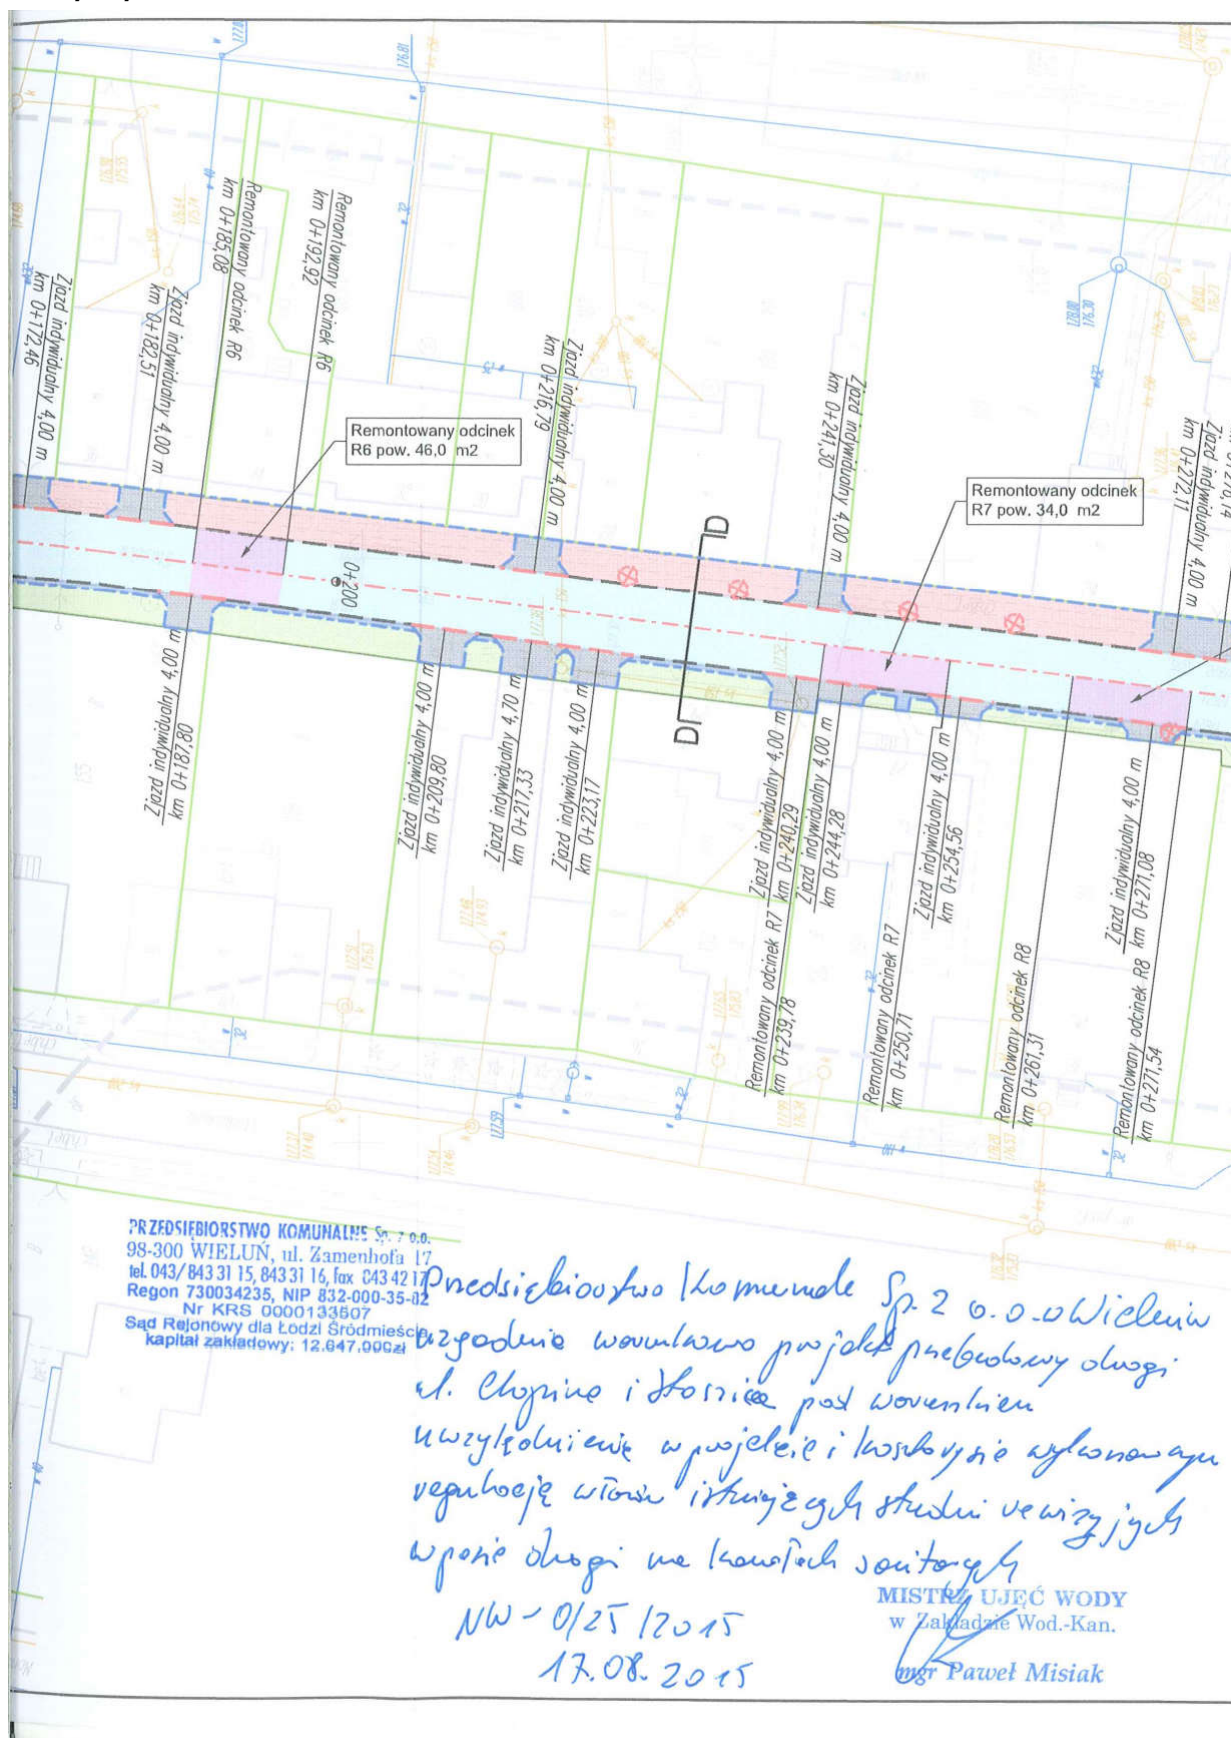 177.0
176.81
Zjazd indywidualny 4,00 m
km 0+172,46
Zjazd indywidualny 4,00 m
km 0+182,51
Remontowany odcinek R6
km 0+185,08
Remontowany odcinek R6
km 0+192,92
Zjazd indywidualny 4,00 m
km 0+216,79
Zjazd indywidualny 4,00 m
km 0+241,30
178.00
176.30
Zjazd indywidualny 4,00 m
km 0+272,11
Remontowany odcinek
R6 pow. 46,0 m2
Remontowany odcinek
R7 pow. 34,0 m2
D
0+200
D
Zjazd indywidualny 4,00 m
km 0+187,80
Zjazd indywidualny 4,00 m
km 0+209,80
Zjazd indywidualny 4,70 m
km 0+217,33
Zjazd indywidualny 4,00 m
km 0+223,17
Zjazd indywidualny 4,00 m
km 0+240,29
Zjazd indywidualny 4,00 m
km 0+244,28
Zjazd indywidualny 4,00 m
km 0+254,56
Zjazd indywidualny 4,00 m
km 0+271,08
Remontowany odcinek R7
km 0+239,78
Remontowany odcinek R7
km 0+250,71
Remontowany odcinek R8
km 0+261,31
Remontowany odcinek R8
km 0+271,54
177.59
PRZEDSIĘBIORSTWO KOMUNALNE Sp. z o.o.
98-300 WIELUŃ, ul. Zamenhofa 17
tel. 043/ 843 31 15, 843 31 16, fax 043 42 17
Regon 730034235, NIP 832-000-35-82
Nr KRS 0000133507
Sąd Rejonowy dla Łodzi Śródmieścia
kapitał zakładowy: 12.647.000zł
Przedsiębiorstwo Komunalne Sp. z o.o. w Wieluniu
uzgadnia warunkowo projekt przebudowy drogi
ul. Chopina i Staszica pod warunkiem
uwzględnienia w projekcie i kosztorysie wykonawczym
regulację włazów istniejących studni rewizyjnych
w pasie drogi na kanałach sanitarnych
NW-0/25/2015
17.08.2015
MISTRZ UJĘĆ WODY
w Zakładzie Wod.-Kan.
mgr Paweł Misiak